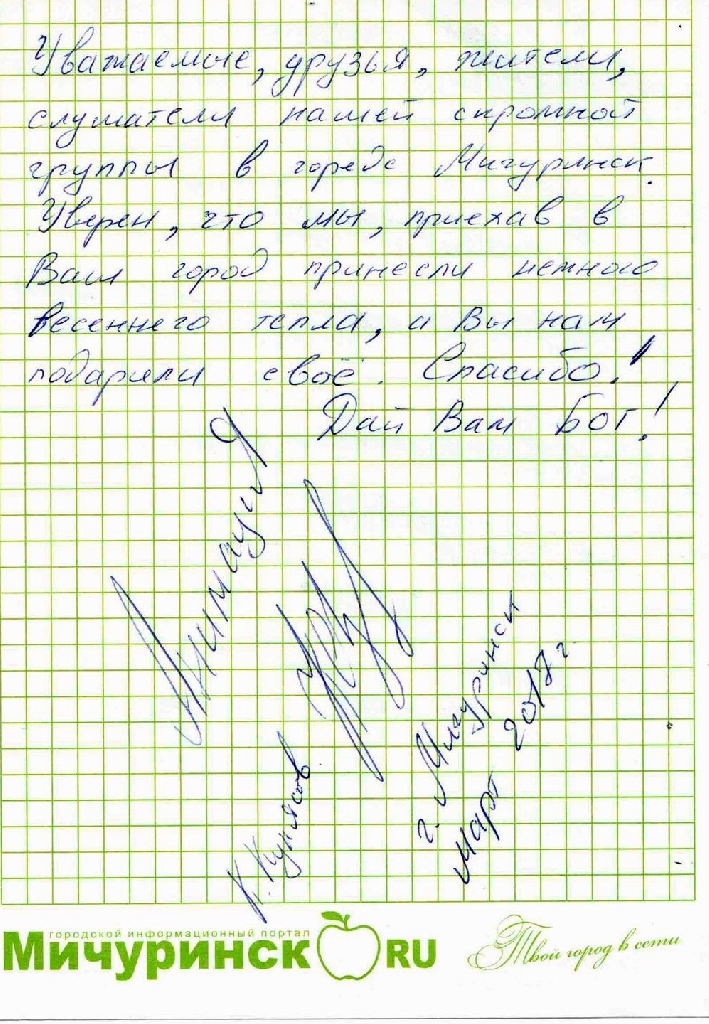 Уважаемые, друзья, жители,
слушатели нашей скромной
группы в городе Мичуринск.
Уверен, что мы, приехав в
Ваш город принесли немного
весеннего тепла, а Вы нам
подарили своё. Спасибо!
Дай Вам Бог!
г. Мичуринск
март 2017 г.
городской информационный портал
Мичуринск RU
Твой город в сети